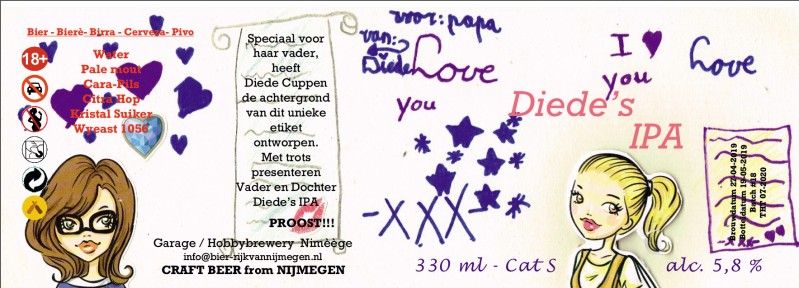 Bier - Bierè- Birra - Cerveza- Pivo
18+
Water
Pale mout
Cara-Pils
Citra Hop
Kristal Suiker
Wyeast 1056
Speciaal voor
haar vader,
heeft
Diede Cuppen
de achtergrond
van dit unieke
etiket
ontworpen.
Met trots
presenteren
Vader en Dochter
Diede's IPA
PROOST!!!
Garage / Hobbybrewery Nimeège
info@bier-rijkvannijmegen.nl
CRAFT BEER from NIJMEGEN
voor: papa
van:
Diede
Love
you
-XXX-
I
you
Love
Diede's
IPA
330 ml - Cat S
alc. 5,8 %
Brouwdatum 27-04-2019
Botteldatum 19-05-2019
Batch #18
THT 07-2020